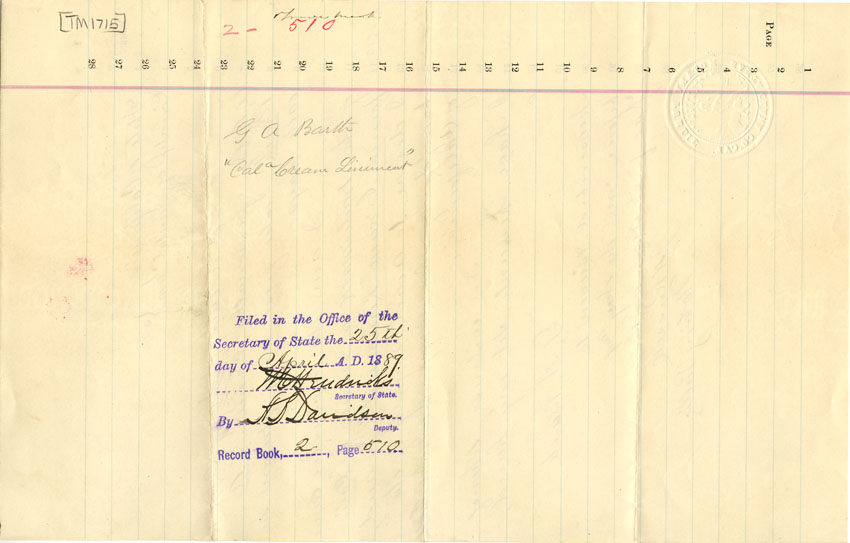 TM1715
2 - 510
PAGE
28 27 26 25 24 23 22 21 20 19 18 17 16 15 14 13 12 11 10 9 8 7 6 5 4 3 2 1
G A Barth
"Cala Cream Liniment"
Filed in the Office of the
Secretary of State the 25th
day of April A. D. 1889.
W C Hendricks
Secretary of State.
By Davidson
Deputy.
Record Book, 2, Page 510